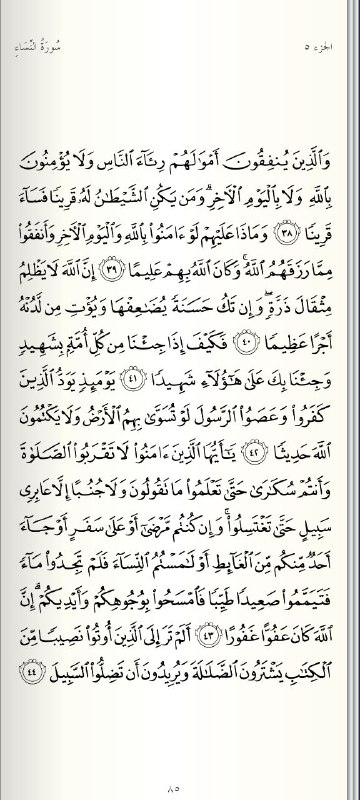 الجزء ٥
سُورَةُ النِّسَاءِ
وَٱلَّذِينَ يُنفِقُونَ أَمْوَٰلَهُمْ رِئَآءَ ٱلنَّاسِ وَلَا يُؤْمِنُونَ
بِٱللَّهِ وَلَا بِٱلْيَوْمِ ٱلْءَاخِرِ ۗ وَمَن يَكُنِ ٱلشَّيْطَٰنُ لَهُۥ قَرِينًا فَسَآءَ
قَرِينًا ٣٨ وَمَاذَا عَلَيْهِمْ لَوْ ءَامَنُوا۟ بِٱللَّهِ وَٱلْيَوْمِ ٱلْءَاخِرِ وَأَنفَقُوا۟
مِمَّا رَزَقَهُمُ ٱللَّهُ ۚ وَكَانَ ٱللَّهُ بِهِمْ عَلِيمًا ٣٩ إِنَّ ٱللَّهَ لَا يَظْلِمُ
مِثْقَالَ ذَرَّةٍ ۖ وَإِن تَكُ حَسَنَةً يُضَٰعِفْهَا وَيُؤْتِ مِن لَّدُنْهُ
أَجْرًا عَظِيمًا ٤٠ فَكَيْفَ إِذَا جِئْنَا مِن كُلِّ أُمَّةٍۭ بِشَهِيدٍ
وَجِئْنَا بِكَ عَلَىٰ هَٰٓؤُلَآءِ شَهِيدًا ٤١ يَوْمَئِذٍ يَوَدُّ ٱلَّذِينَ
كَفَرُوا۟ وَعَصَوُا۟ ٱلرَّسُولَ لَوْ تُسَوَّىٰ بِهِمُ ٱلْأَرْضُ وَلَا يَكْتُمُونَ
ٱللَّهَ حَدِيثًا ٤٢ يَٰٓأَيُّهَا ٱلَّذِينَ ءَامَنُوا۟ لَا تَقْرَبُوا۟ ٱلصَّلَوٰةَ
وَأَنتُمْ سُكَٰرَىٰ حَتَّىٰ تَعْلَمُوا۟ مَا تَقُولُونَ وَلَا جُنُبًا إِلَّا عَابِرِى
سَبِيلٍ حَتَّىٰ تَغْتَسِلُوا۟ ۚ وَإِن كُنتُم مَّرْضَىٰٓ أَوْ عَلَىٰ سَفَرٍ أَوْ جَآءَ
أَحَدٌ مِّنكُم مِّنَ ٱلْغَآئِطِ أَوْ لَٰمَسْتُمُ ٱلنِّسَآءَ فَلَمْ تَجِدُوا۟ مَآءً
فَتَيَمَّمُوا۟ صَعِيدًا طَيِّبًا فَٱمْسَحُوا۟ بِوُجُوهِكُمْ وَأَيْدِيكُمْ ۗ إِنَّ
ٱللَّهَ كَانَ عَفُوًّا غَفُورًا ٤٣ أَلَمْ تَرَ إِلَى ٱلَّذِينَ أُوتُوا۟ نَصِيبًا مِّنَ
ٱلْكِتَٰبِ يَشْتَرُونَ ٱلضَّلَٰلَةَ وَيُرِيدُونَ أَن تَضِلُّوا۟ ٱلسَّبِيلَ ٤٤
٨٥